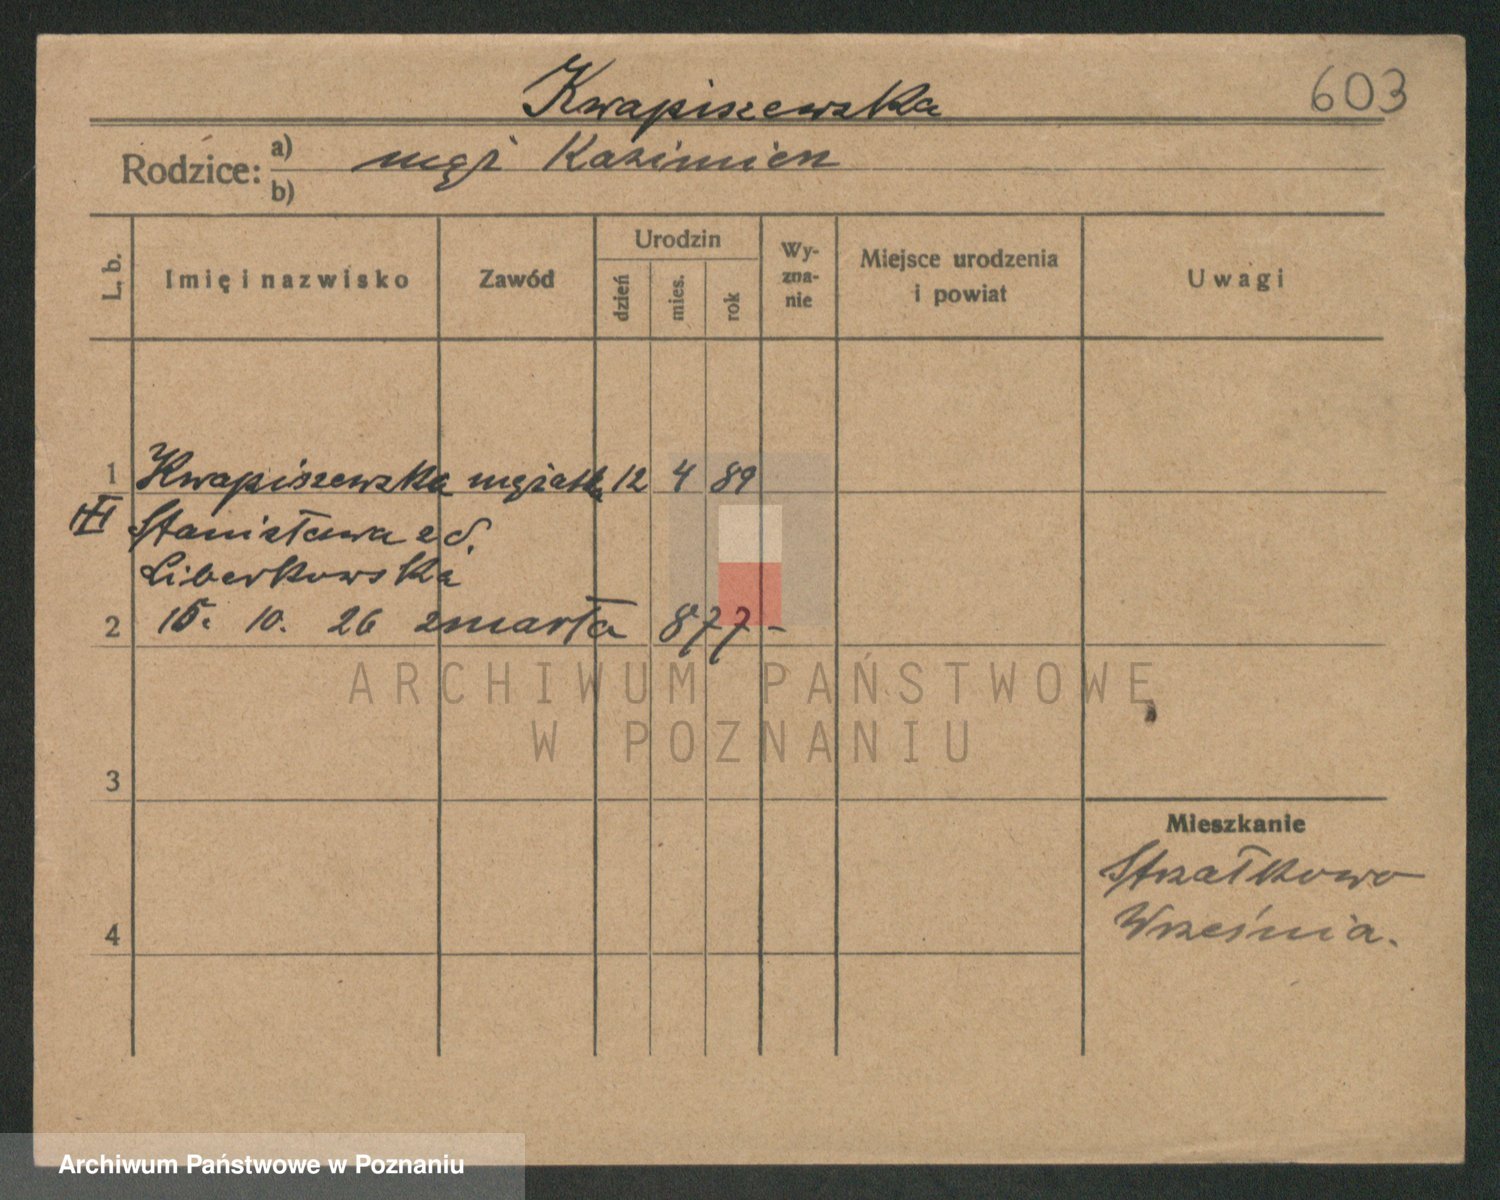 603
Kwapiszewska
Rodzice: a) mąż Kazimierz
b)
L. b.
Imię i nazwisko
Zawód
Urodzin
dzień
mies.
rok
Wy-
zna-
nie
Miejsce urodzenia
i powiat
Uwagi
1 Kwapiszewska mężatka 12 4 89
Stanisława z d.
Liberkowska
2 15. 10. 26 zmarła 877 -
ARCHIWUM PAŃSTWOWE
W POZNANIU
3
Mieszkanie
Strzałkowo
Września.
4
Archiwum Państwowe w Poznaniu